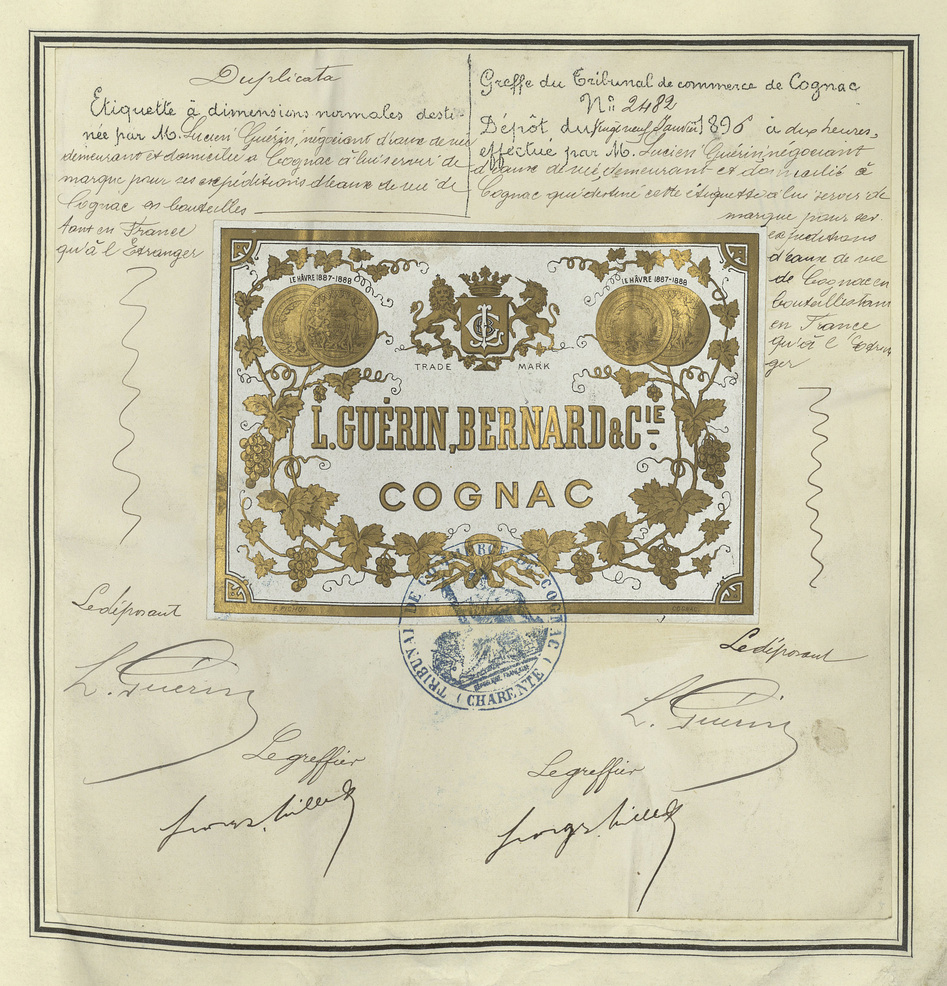 Duplicata
Etiquette à dimensions normales desti-
née par M. Lucien Guérin, négociant d'eaux de vie
demeurant et domicilié à Cognac à lui servir de
marque pour ces expéditions d'eaux de vie de
Cognac en bouteilles
tant en France
qu'à l'Etranger
Greffe du Tribunal de commerce de Cognac
N° 2482
Dépôt du vingt neuf Janvier 1896 à dix heures,
effectué par M. Lucien Guérin, négociant
d'eaux de vie, demeurant et domicilié à
Cognac qui destine cette étiquette à lui servir de
marque pour ses
expéditions
d'eaux de vie
de Cognac en
bouteilles tant
en France
qu'à l'Etran
ger
LE HÂVRE 1887-1888
LE HÂVRE 1887-1888
TRADE MARK
L. GUÉRIN, BERNARD & CIE
COGNAC
E. PICHOT
COGNAC
TRIBUNAL DE COMMERCE DE COGNAC
( CHARENTE )
Le déposant
L. Guérin
Le greffier
Le déposant
L. Guérin
Le greffier